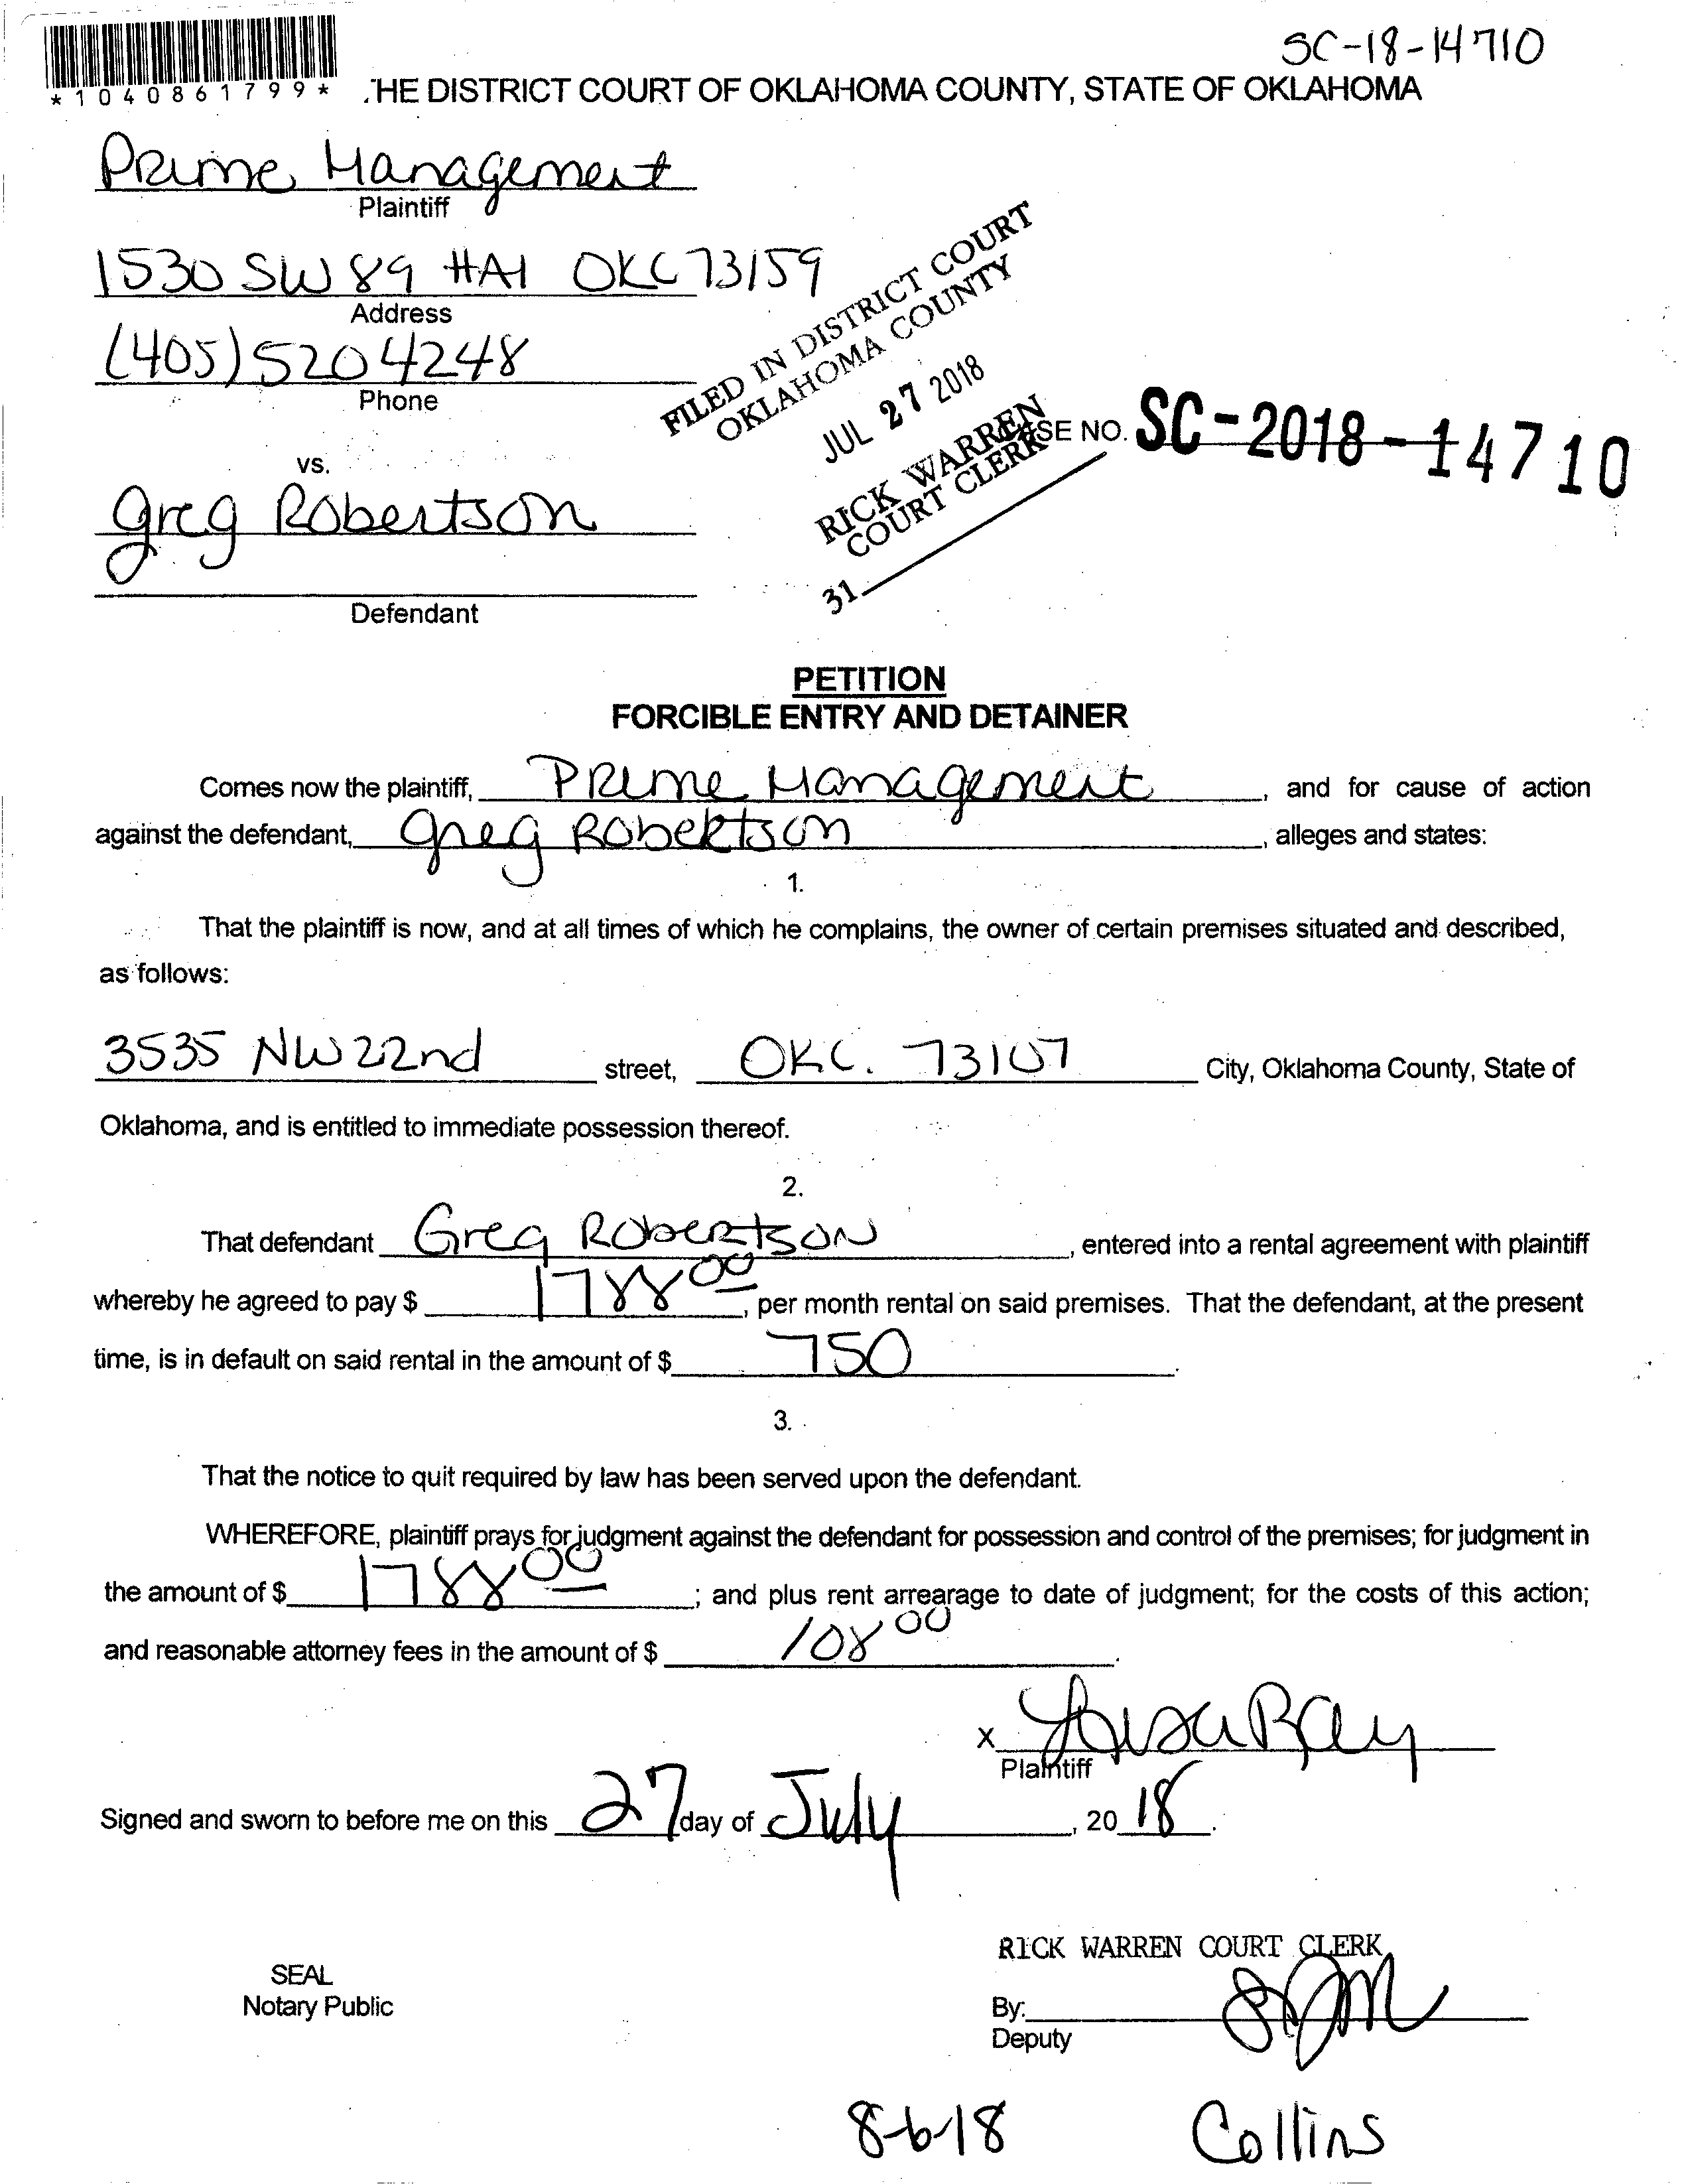 SC-18-14710
*1040861799*
.HE DISTRICT COURT OF OKLAHOMA COUNTY, STATE OF OKLAHOMA
Prime Management
Plaintiff
1530 SW 89 #A1 OKC 73159
Address
(405) 520 4248
Phone
FILED IN DISTRICT COURT
OKLAHOMA COUNTY
JUL 27 2018
RICK WARREN
COURT CLERK
31
SE NO. SC-2018-14710
vs.
Greg Robertson
Defendant
PETITION
FORCIBLE ENTRY AND DETAINER
Comes now the plaintiff, Prime Management, and for cause of action
against the defendant, Greg Robertson, alleges and states:
1.
That the plaintiff is now, and at all times of which he complains, the owner of certain premises situated and described,
as follows:
3535 NW 22nd street, OKC. 73107 City, Oklahoma County, State of
Oklahoma, and is entitled to immediate possession thereof.
2.
That defendant Greg Robertson, entered into a rental agreement with plaintiff
whereby he agreed to pay $ 1788 00, per month rental on said premises. That the defendant, at the present
time, is in default on said rental in the amount of $ 750.
3.
That the notice to quit required by law has been served upon the defendant.
WHEREFORE, plaintiff prays for judgment against the defendant for possession and control of the premises; for judgment in
the amount of $ 1788 00; and plus rent arrearage to date of judgment; for the costs of this action;
and reasonable attorney fees in the amount of $ 108 00.
x Lisa Ray
Plaintiff
Signed and sworn to before me on this 27 day of July, 20 18.
RICK WARREN COURT CLERK
SEAL
Notary Public
By:
Deputy
8-6-18 Collins